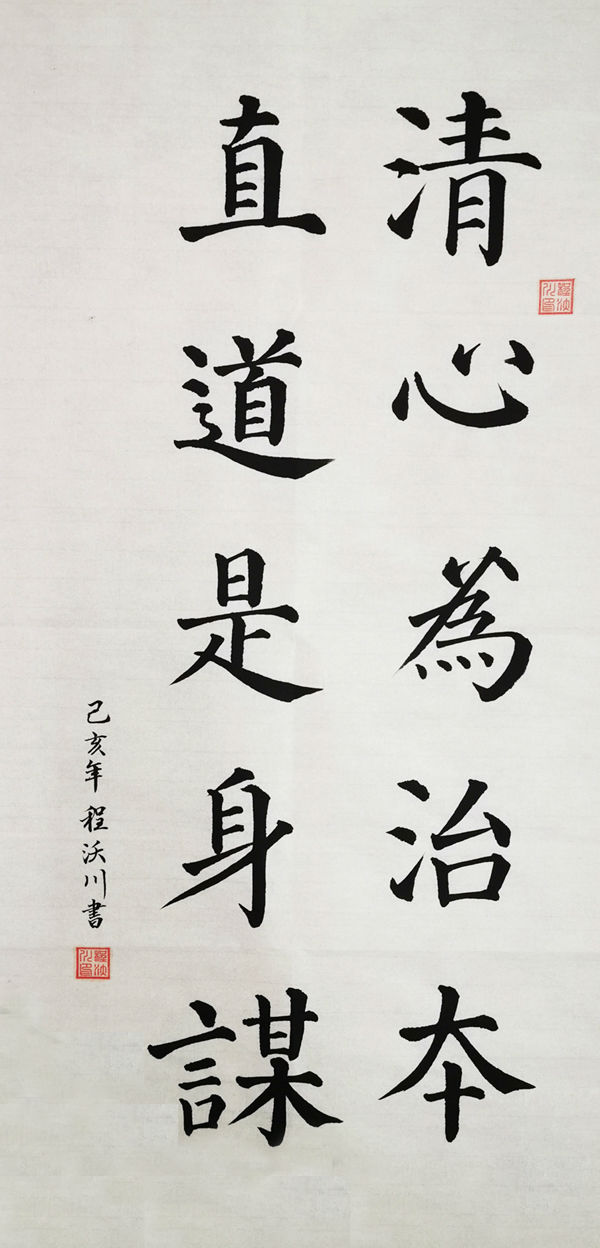 清心為治本
直道是身謀
己亥年 程沃川書